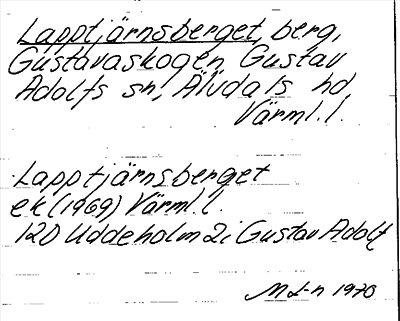 Lapptjärnsberget, berg,
Gustavaskogen, Gustav
Adolfs sn, Älvdals hd,
Värml. l.
Lapptjärnsberget
ek (1969) Värml. l.
12D Uddeholm 2i Gustav Adolf
M L-n 1970